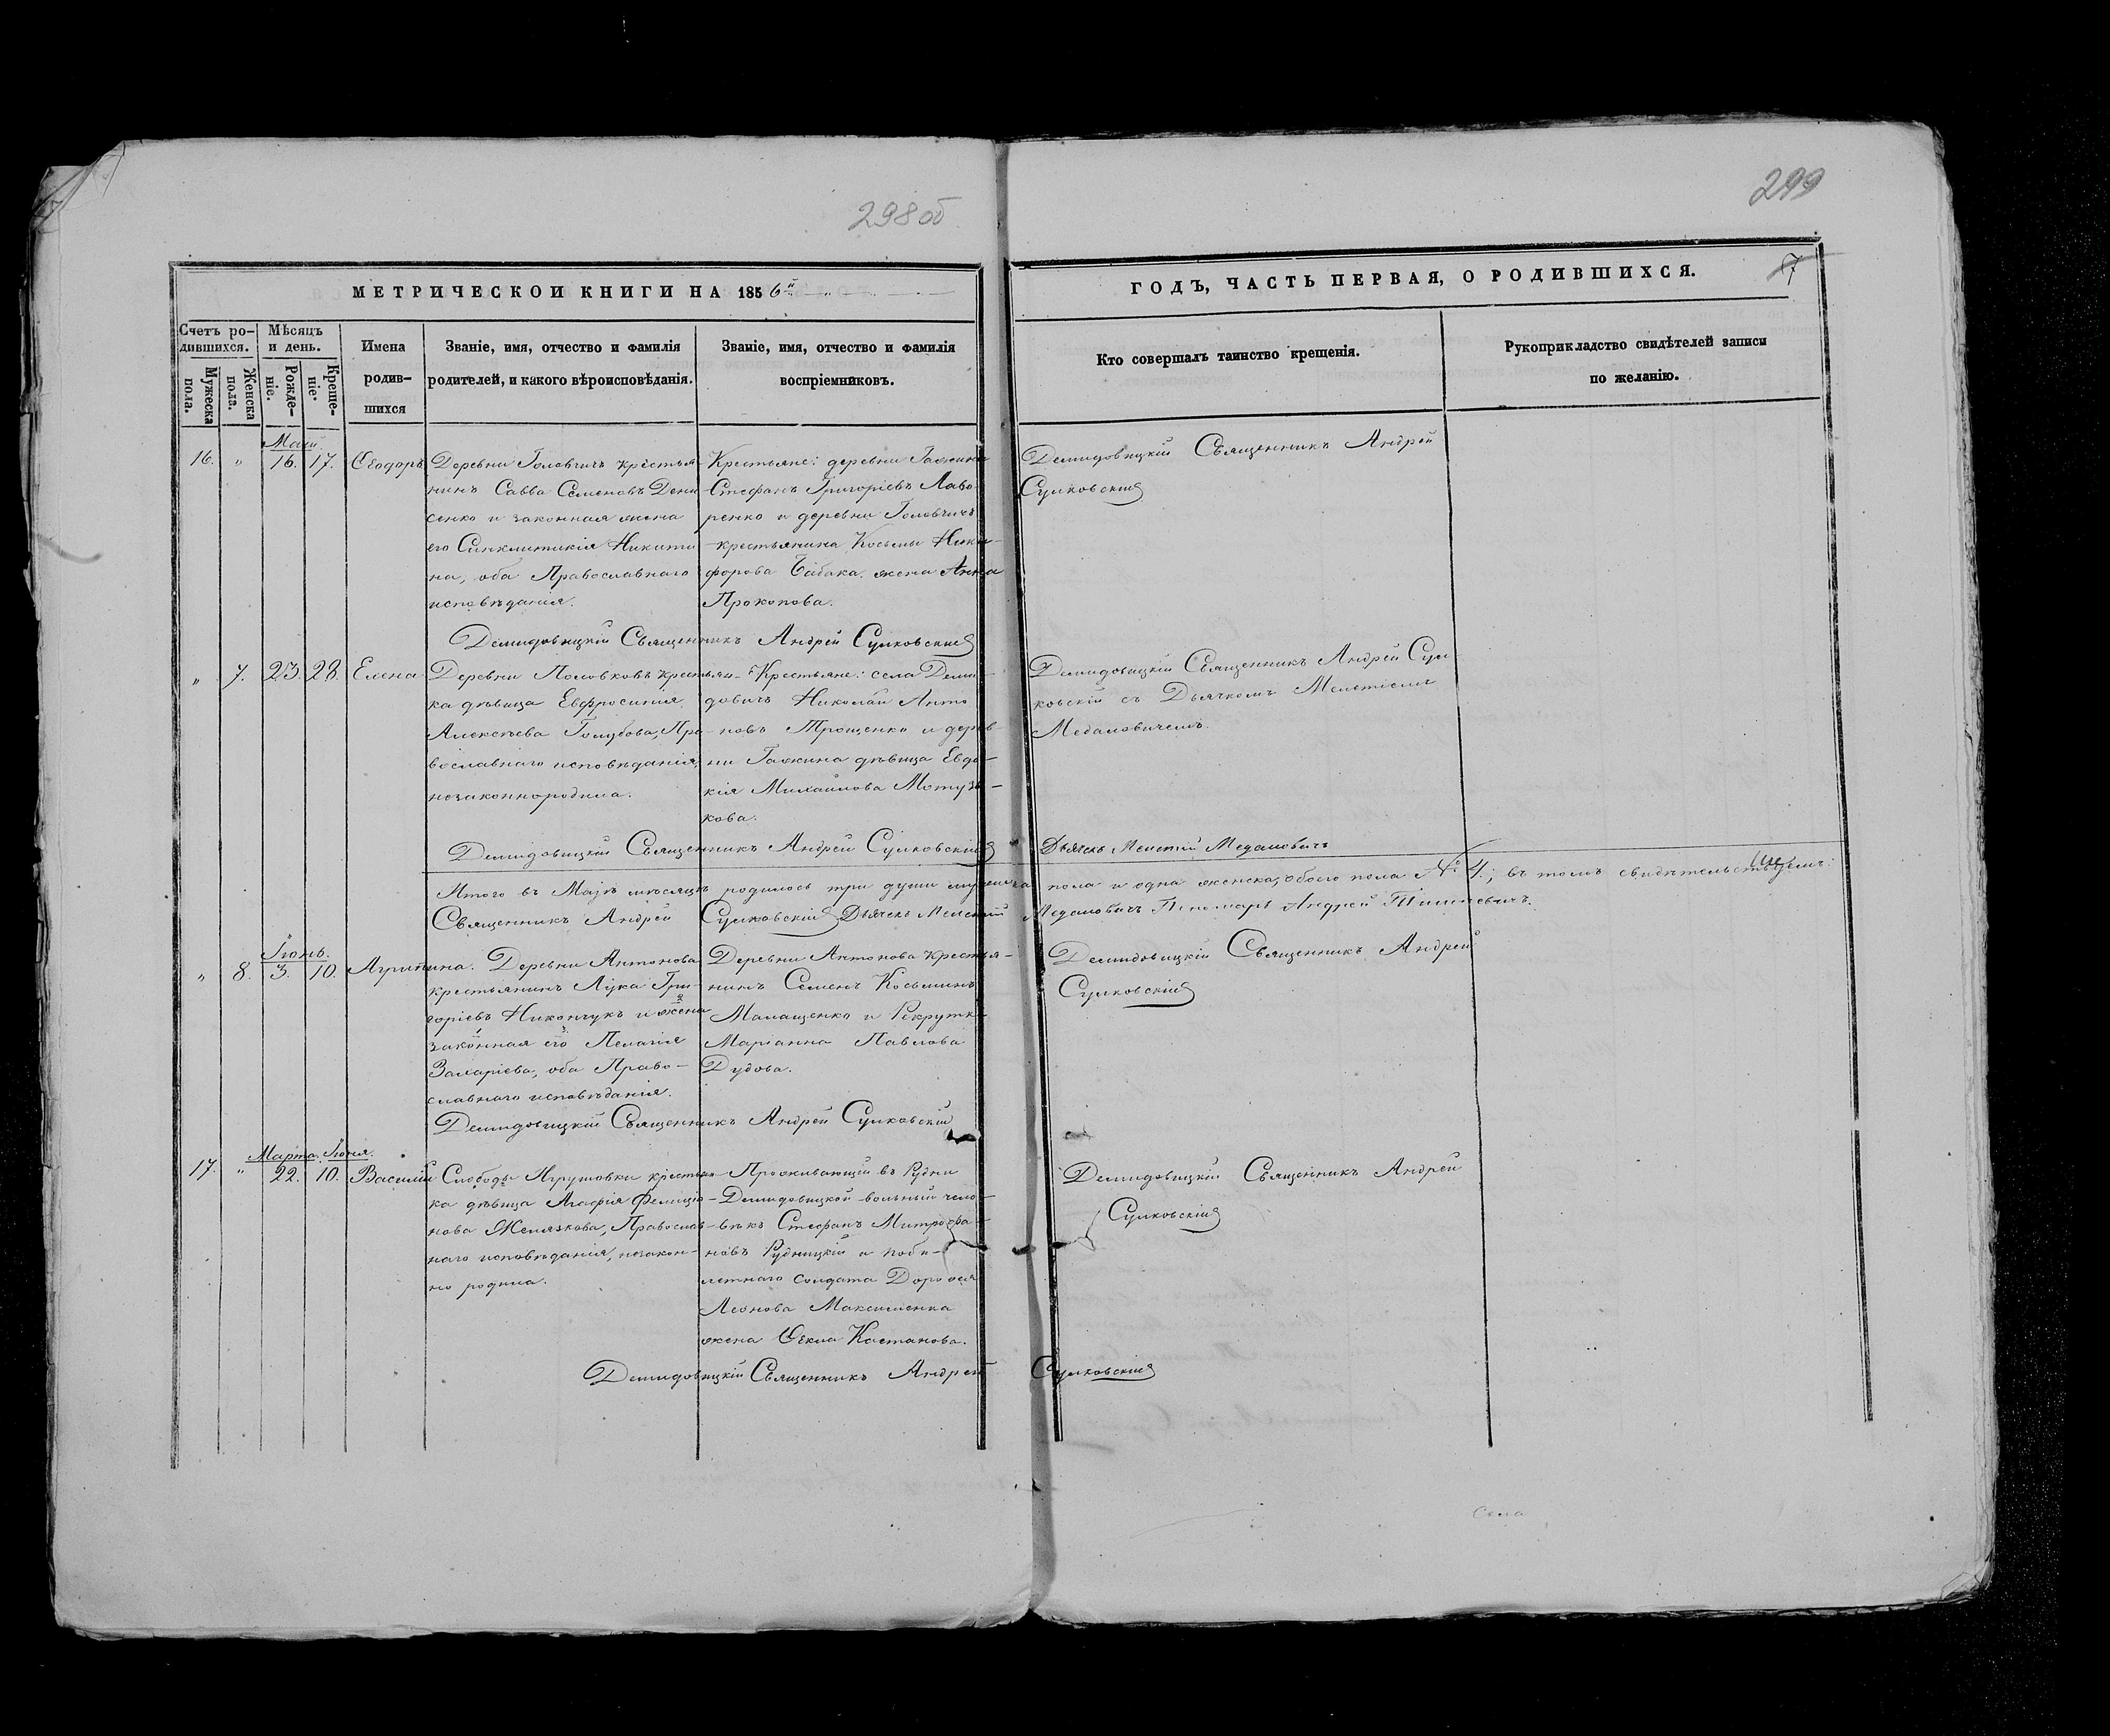 298об
299
МЕТРИЧЕСКОЙ КНИГИ НА 1856й
ГОДЪ, ЧАСТЬ ПЕРВАЯ, О РОДИВШИХСЯ.
7
Счетъ ро-
дившихся.
Мужеска
пола.
Женска
пола.
Мѣсяцъ
и день.
Рожде-
ніе.
Креще-
ніе.
Имена
родив-
шихся
Званіе, имя, отчество и фамилія
родителей, и какого вѣроисповѣданія.
Званіе, имя, отчество и фамилія
воспріемниковъ.
Кто совершалъ таинство крещенія.
Рукоприкладство свидѣтелей записи
по желанію.
16. " 16. 17. Ѳеодоръ
Деревни Головчичъ крестья-
нинъ Савва Семеновъ Дени-
сенко и законная жена
его Синклитикія Никити-
на, оба Православнаго
исповѣданія.
Крестьяне: деревни Гажина
Стефанъ Григоріевъ Лаво-
ренко и деревни Головчичъ
крестьянина Косьмы Ники-
форова жена Анна
Прокопова.
Демидовицкій Священникъ Андрей
Сулковскій
Демидовицкій Священникъ Андрей Сулковскій
" 7. 23. 28. Елена
Деревни Половковъ крестьян-
ка дѣвица Евфросинія
Алексѣева Голубова, Пра-
вославнаго исповѣданія,
незаконнородила.
Крестьяне: села Деми-
довичъ Николай Анто-
новъ Трощенко и дерев-
ни Гажина дѣвица Евдо-
кія Михайлова Мотузь-
кова.
Демидовицкій Священникъ Андрей Сул-
ковскій съ Дьячкомъ Мелетіемъ
Медаловичемъ.
Демидовицкій Священникъ Андрей Сулковскій Дьячекъ Мелетій Медаловичъ
Итого въ Маѣ мѣсяцѣ родилось три души мужеска пола и одна женска, обоего пола № 4; въ томъ свидѣтельствуемъ:
Священникъ Андрей Сулковскій Дьячекъ Мелетій Медаловичъ Пономарь Андрей
Іюнь.
" 8. 3. 10. Агрипина.
Деревни Антонова
крестьянинъ Лука Гри-
горіевъ Никончукъ и жена
законная его Пелагія
Захаріева, оба Право-
славнаго исповѣданія.
Деревни Антонова крестья-
нинъ Семенъ Косьминъ
Малащенко и Рекрутка
Маріанна Павлова
Дудова.
Демидовицкій Священникъ Андрей
Сулковскій
Демидовицкій Священникъ Андрей Сулковскій
Марта. Іюня.
17. " 22. 10. Василій
Слободы крестьян-
ка дѣвица Агафія Фелиціа-
нова Желязкова, Православ-
наго исповѣданія, незакон-
но родила.
Проживающій въ Рудни
Демидовицкой вольный чело-
вѣкъ Стефанъ Митрофа-
новъ Рудницкій и поби-
летнаго солдата Дорофея
Леонова Максименка
жена Ѳекла Костанова.
Демидовицкій Священникъ Андрей
Сулковскій
Демидовицкій Священникъ Андрей Сулковскій
села